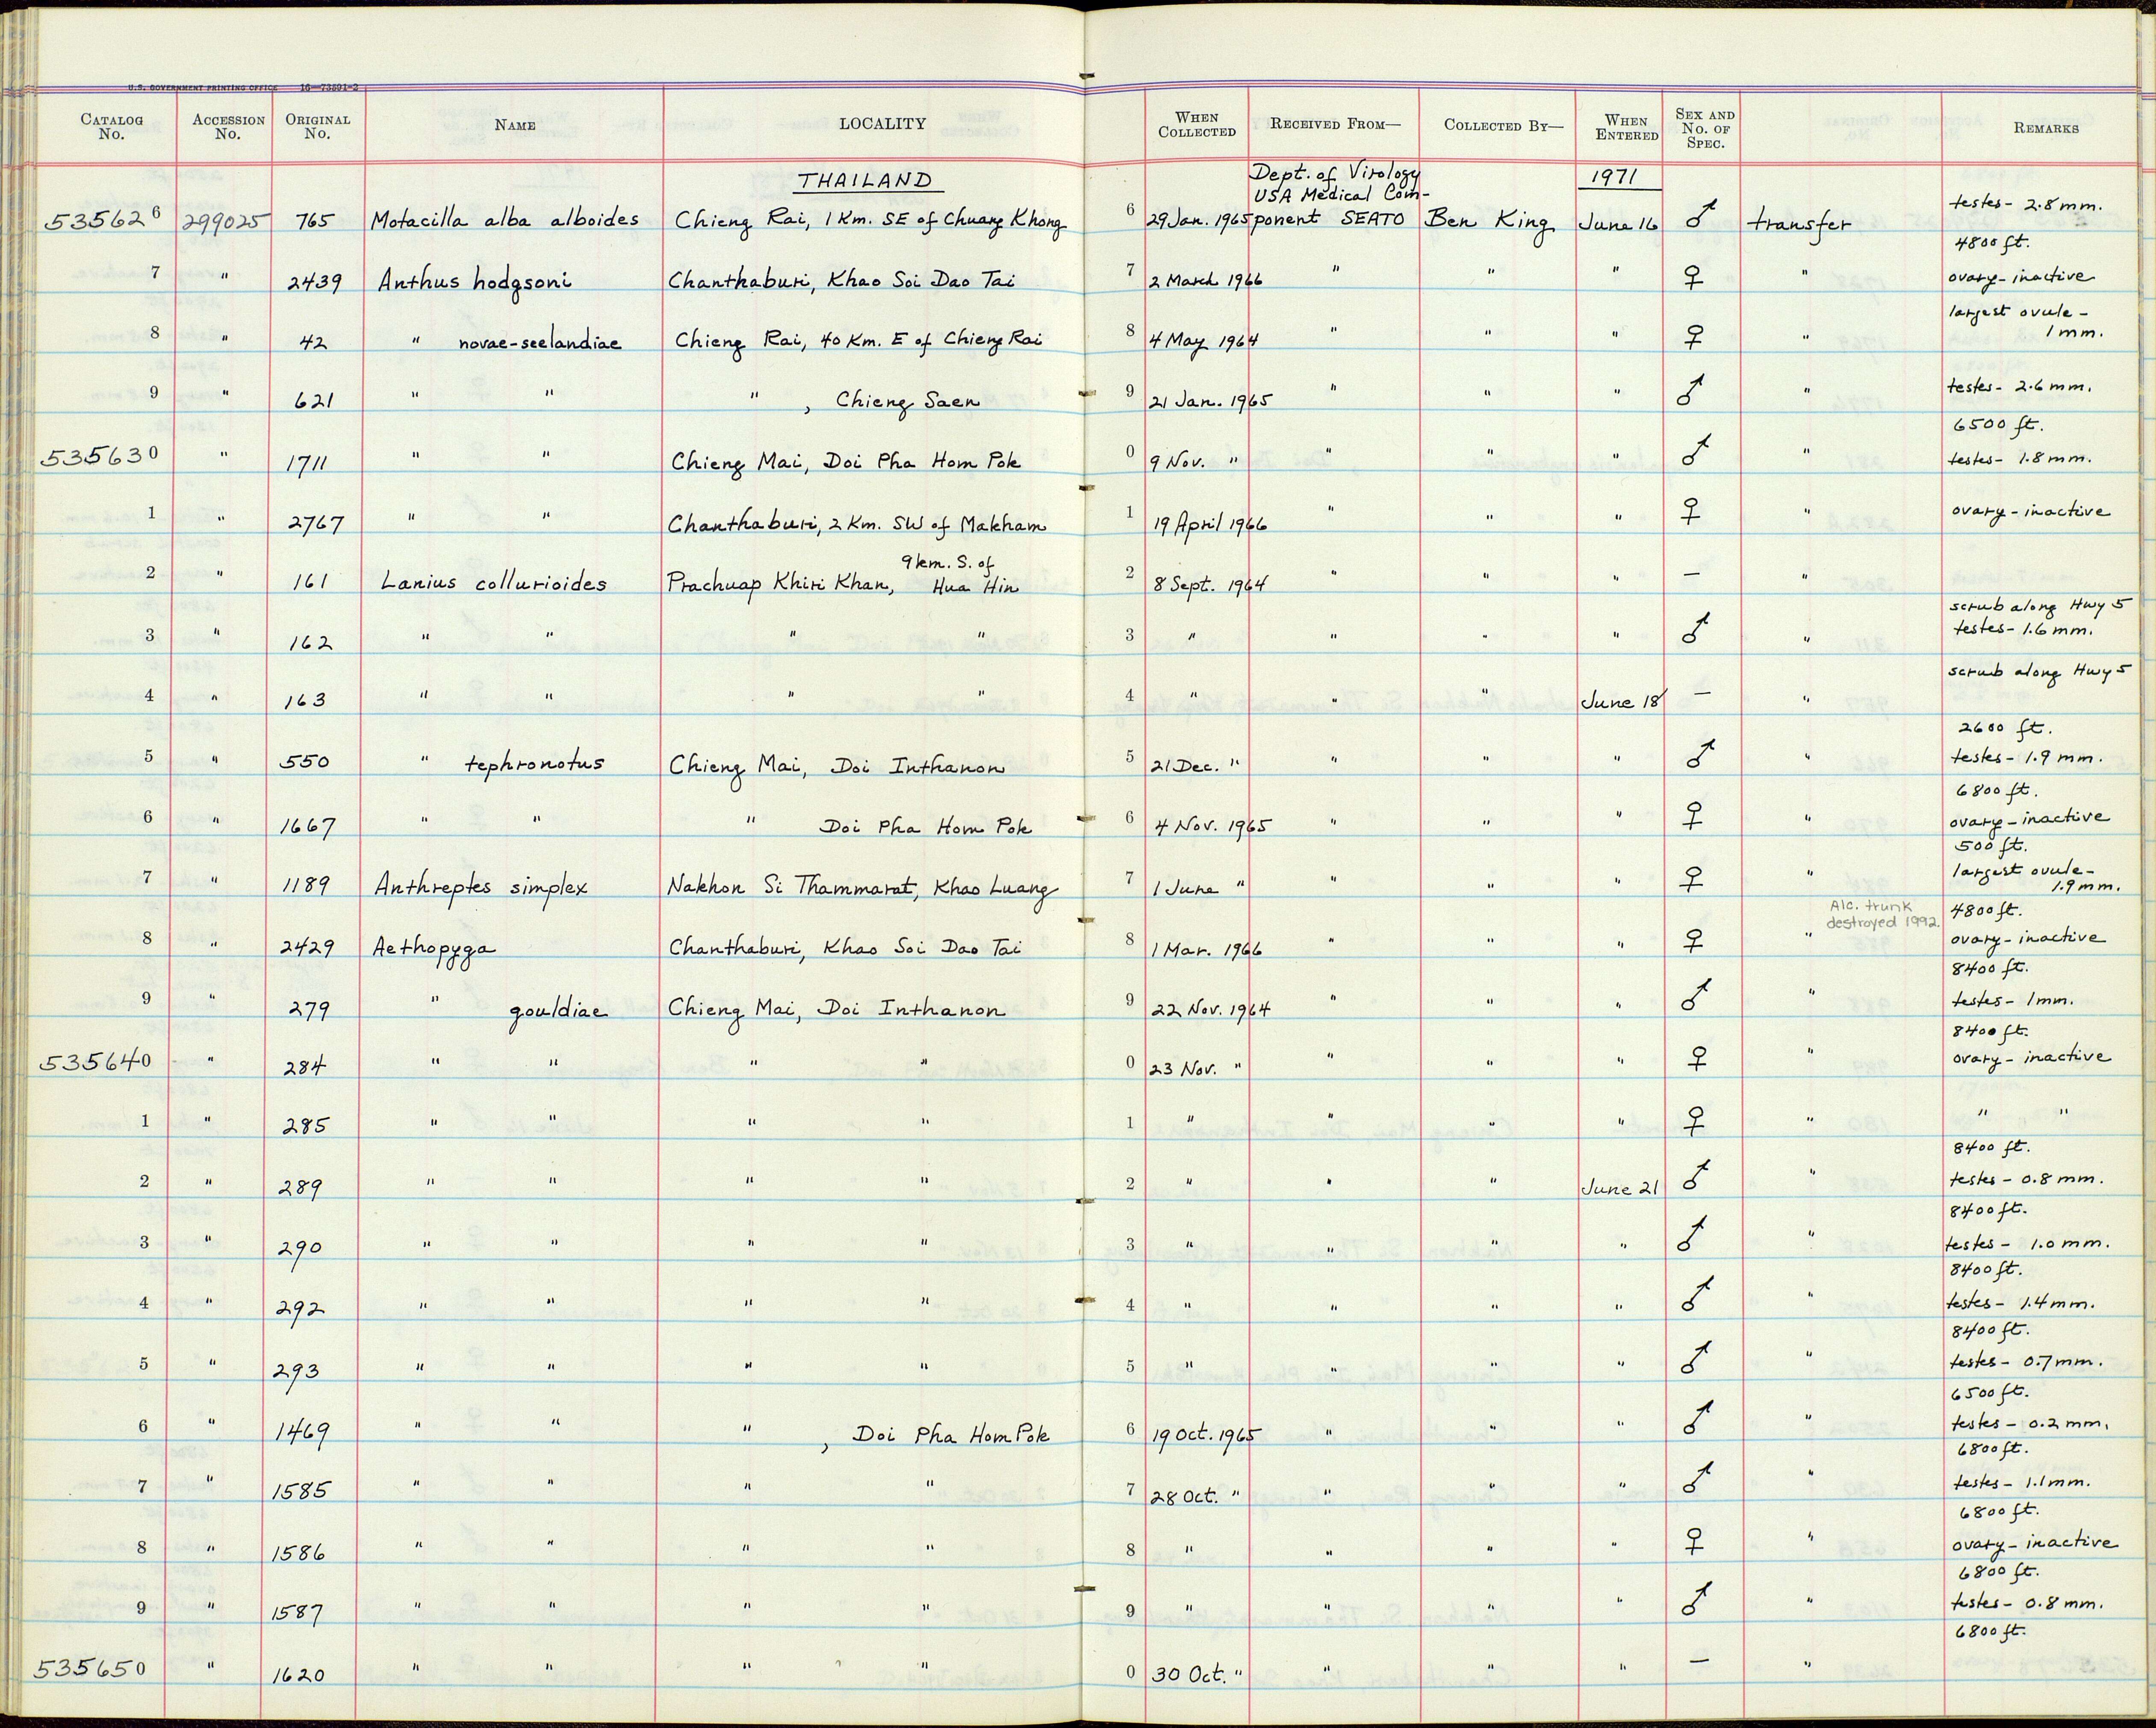 U.S. GOVERNMENT PRINTING OFFICE 16—73591-2
CATALOG No. ACCESSION No. ORIGINAL No. NAME LOCALITY WHEN COLLECTED RECEIVED FROM— COLLECTED BY— WHEN ENTERED SEX AND No. OF SPEC. REMARKS
THAILAND Dept. of Virology USA Medical Com- 1971
535626 299025 765 Motacilla alba alboides Chieng Rai, 1 Km. SE of Chuang Khong 6 29 Jan. 1965 ponent SEATO Ben King June 16 ♂ transfer testes- 2.8 mm.
4800 ft.
7 " 2439 Anthus hodgsoni Chanthaburi, Khao Soi Dao Tai 7 2 March 1966 " " " ♀ " ovary- inactive
largest ovule -
8 " 42 " novae-seelandiae Chieng Rai, 40 Km. E of Chieng Rai 8 4 May 1964 " " " ♀ " 1 mm.
9 " 621 " " " , Chieng Saen 9 21 Jan. 1965 " " " ♂ " testes- 2.6 mm.
6500 ft.
535630 " 1711 " " Chieng Mai, Doi Pha Hom Pok 0 9 Nov. " " " " ♂ " testes- 1.8 mm.
1 " 2767 " " Chanthaburi, 2 Km. SW of Makham 1 19 April 1966 " " " ♀ " ovary- inactive
9 km. S. of
2 " 161 Lanius collurioides Prachuap Khiri Khan, Hua Hin 2 8 Sept. 1964 " " " — "
scrub along Hwy 5
3 " 162 " " " " 3 " " " " ♂ " testes- 1.6 mm.
scrub along Hwy 5
4 " 163 " " " " 4 " " " June 18 — "
2600 ft.
5 " 550 " tephronotus Chieng Mai, Doi Inthanon 5 21 Dec. " " " " ♂ " testes- 1.9 mm.
6800 ft.
6 " 1667 " " " Doi Pha Hom Pok 6 4 Nov. 1965 " " " ♀ " ovary- inactive
500 ft.
7 " 1189 Anthreptes simplex Nakhon Si Thammarat, Khao Luang 7 1 June " " " " ♀ " largest ovule- 1.9 mm.
Alc. trunk destroyed 1992. 4800 ft.
8 " 2429 Aethopyga Chanthaburi, Khao Soi Dao Tai 8 1 Mar. 1966 " " " ♀ " ovary- inactive
8400 ft.
9 " 279 " gouldiae Chieng Mai, Doi Inthanon 9 22 Nov. 1964 " " " ♂ " testes- 1mm.
8400 ft.
535640 " 284 " " " " 0 23 Nov. " " " " ♀ " ovary- inactive
1 " 285 " " " " 1 " " " " ♀ " " "
8400 ft.
2 " 289 " " " " 2 " " " June 21 ♂ " testes - 0.8 mm.
8400 ft.
3 " 290 " " " " 3 " " " " ♂ " testes - 1.0 mm.
8400 ft.
4 " 292 " " " " 4 " " " " ♂ " testes - 1.4 mm.
8400 ft.
5 " 293 " " " " 5 " " " " ♂ " testes - 0.7 mm.
6500 ft.
6 " 1469 " " " , Doi Pha Hom Pok 6 19 Oct. 1965 " " " ♂ " testes - 0.2 mm.
6800 ft.
7 " 1585 " " " " 7 28 Oct. " " " " ♂ " testes - 1.1mm.
6800 ft.
8 " 1586 " " " " 8 " " " " ♀ " ovary- inactive
6800 ft.
9 " 1587 " " " " 9 " " " " ♂ " testes - 0.8 mm.
6800 ft.
535650 " 1620 " " " " 0 30 Oct. " " " " — "